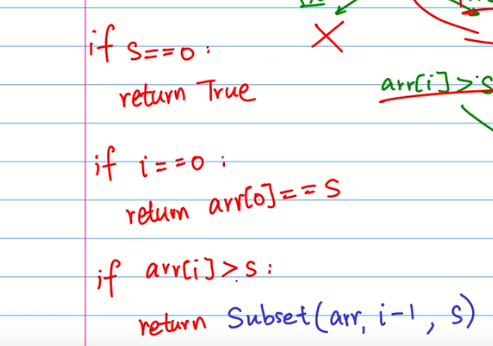 if s==0 :
return True
arr[i]>s
if i==0 :
return arr[0]==s
if arr[i]>s :
return Subset(arr, i-1, s)